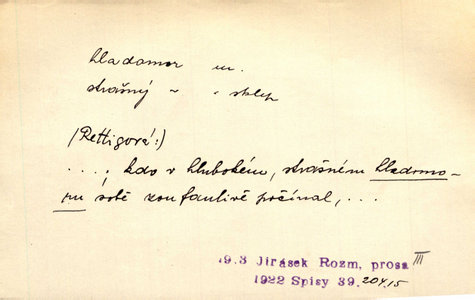 hladomor m.
strašný ~ , sklep
(Rettigová:)
...., kdo v hlubokém, strašném hladomo-
ru sobě zoufanlivě počínal, ...
19.3 Jirásek Rozm, prosa III
1922 Spisy 39. 204.15